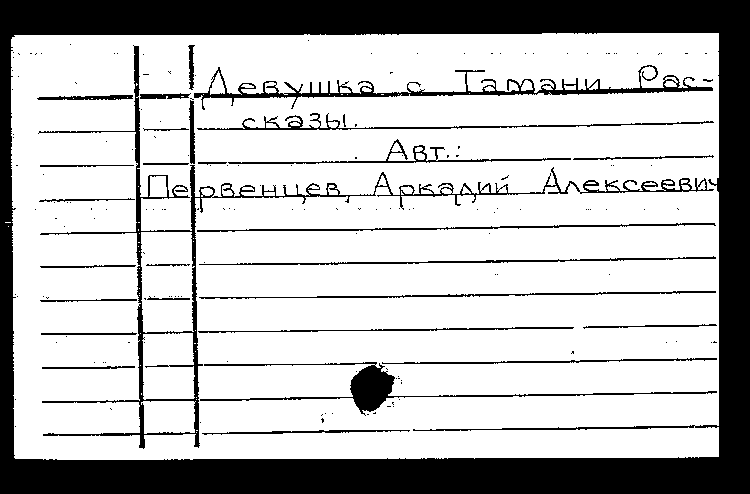 Девушка с Тамани. Рас-
сказы.
Авт.:
Первенцев, Аркадий Алексеевич